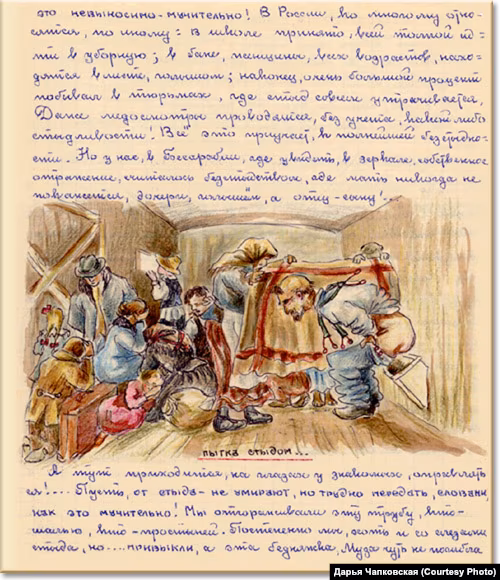 это невыносимо-мучительно! В России, ко многому отно-
сятся, по иному: в школе принято, всей толпой ид-
ти в уборную; в бане, женщины, всех возрастов, нахо-
дятся вместе, голышом; наконец, очень большой процент
побывал в тюрьмах, где стыд совсем утрачивается.
Даже медосмотры проводятся, без учета, какой либо
стыдливости! Всё это приучает, к полнейшей бесстыдно-
сти. Но у нас, в Бессарабии, где увидеть, в зеркале, собственное
отражение, считалось бесстыдством, где мать никогда не
покажется, дочери, голышём, а отец-сыну!..
пытка стыдом...
А тут приходится, на глазах у знакомых, оправлять
ся!.... Пусть, от стыда - не умирают, но трудно передать, словами,
как это мучительно! Мы отгораживали эту трубу, кто-
шалью, кто-простыней. Постепенно мы, хоть и со слезами
стыда, но.... привыкли, а эта бедняжка, Муза чуть не погибла
Дарья Чапковская (Courtesy Photo)